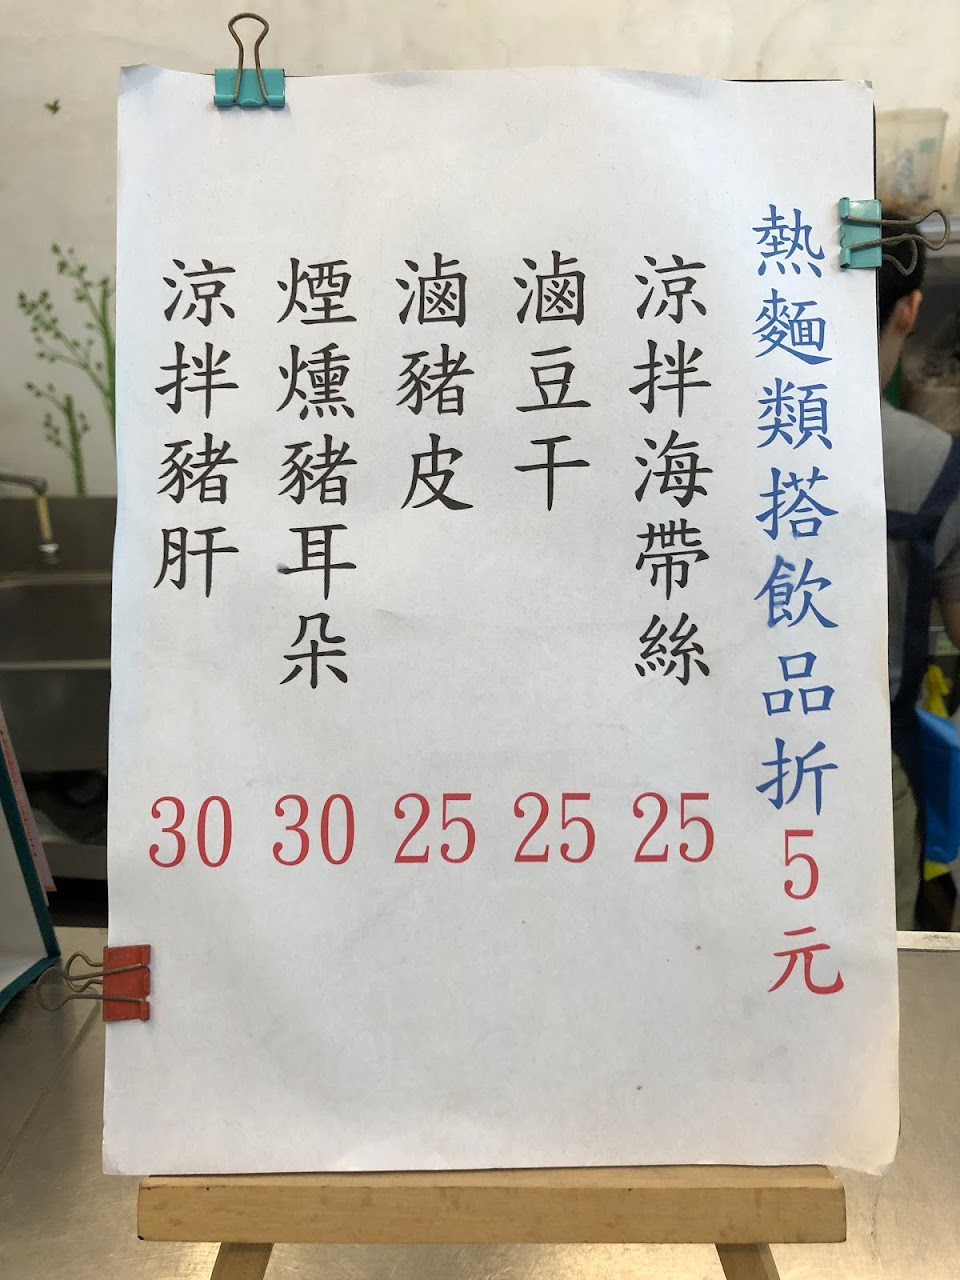 熱麵類搭飲品折5元
涼拌海帶絲 25
滷豆干 25
滷豬皮 25
煙燻豬耳朵 30
涼拌豬肝 30